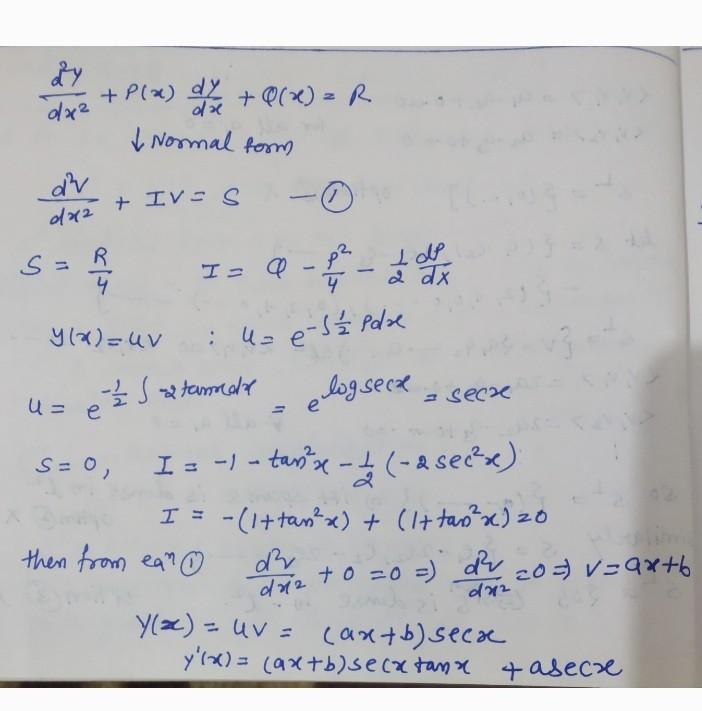 d²y/dx² + P(x) dy/dx + Q(x) = R
↓ Normal form
d²v/dx² + Iv = S —①
S = R/4 I = Q - P²/4 - 1/2 dP/dx
y(x) = uv : u = e^{-∫1/2 Pdx}
u = e^{-1/2 ∫-2tanxdx} = e^{log secx} = secx
S = 0, I = -1 - tan²x - 1/2 (-2sec²x)
I = -(1+tan²x) + (1+tan²x) = 0
then from eqⁿ ① d²v/dx² + 0 = 0 ⇒ d²v/dx² = 0 ⇒ v = ax+b
y(x) = uv = (ax+b) secx
y'(x) = (ax+b) secx tanx + asecx